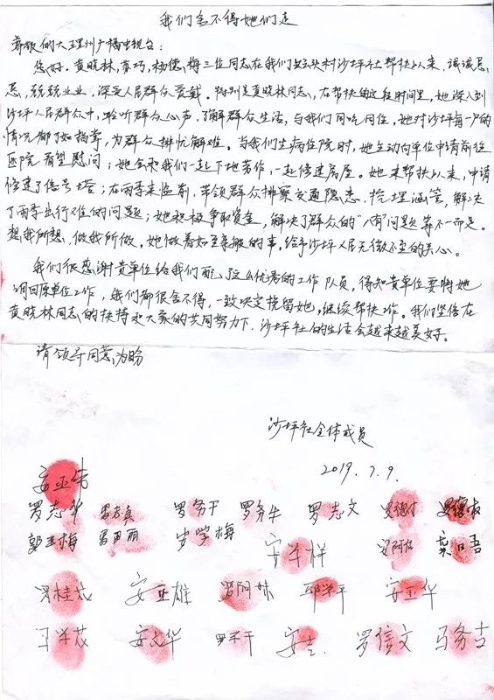 我们舍不得她们走
尊敬的大理州广播电视台：
您好。黄晓林、杨德梅三位同志在我们村沙坪社帮扶以来，诚诚恳
恳，兢兢业业，深受人居群众爱戴。特别是黄晓林同志，在帮扶的这段时间里，她深入到
沙坪人居群众中，聆听群众心声，了解群众生活，与我们同吃同住，她对沙坪每一户的
情况都了如指掌，为群众排忧解难。当我们生病住院时，她主动向单位申请前往
医院看望慰问；她会和我们一起下地劳作，一起修建房屋。她来帮扶以来，申请
修建了信号塔；在雨季来临前，带领群众排察交通隐患，挖埋涵管，解决
了雨季出行不住的问题；她积极争取资金，解决了群众的"人有"问题等不一而足。
想我所想，做我所做。她做着如至亲般的事，给予沙坪人居无微不至的关心。
我们很感谢贵单位给我们配这么优秀的工作队员，得知贵单位要将她
调回原单位工作，我们都很舍不得，一致决定挽留她，继续帮扶工作。我们坚信在
黄晓林同志的扶持和大家的共同努力下，沙坪社的生活会越来越美好。
请领导同意为盼
沙坪社全体成员
2019.7.9.
罗务干 罗务牛 罗志文
郭玉梅 安午祥
罗桂花 安亚雄 罗阿妹 邱学平 安亚华
安文华 罗学干 安吉 罗信文 马务吉